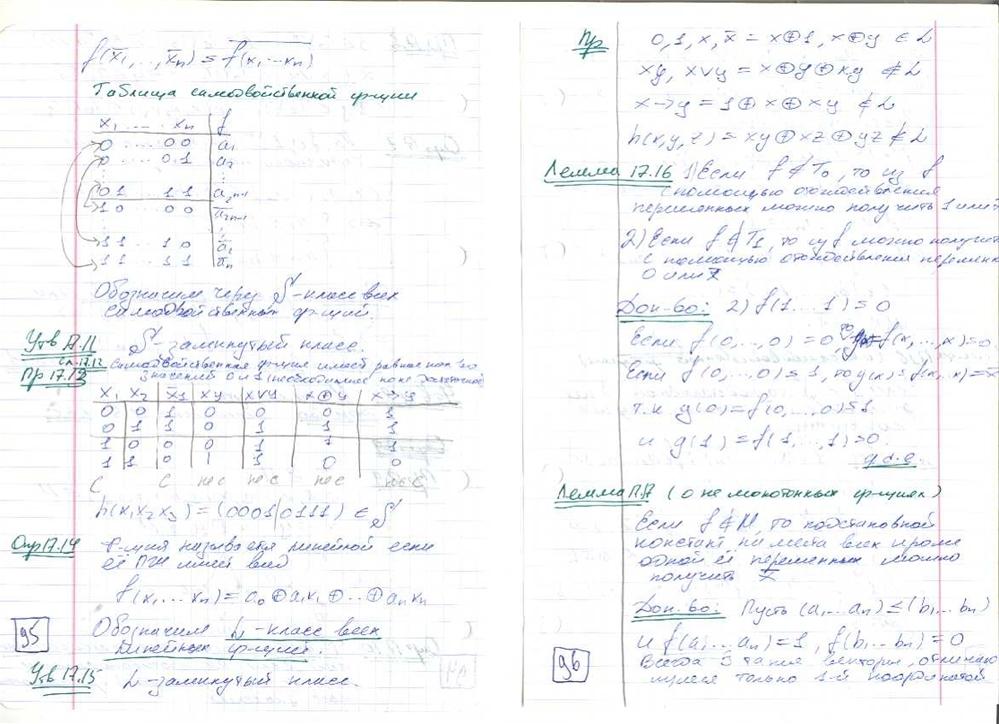 f(x̄₁,...,x̄ₙ) = \overline{f(x₁...xₙ)}
Таблица самодвойственной ф-ции
x₁ .... xₙ | f
0 ... 00 | a₁
0 ... 01 | a₂
⋮
01 .. 11 | a₂ₙ₋₁
10 .. 00 | ā₂ₙ₋₁
⋮
11 .. 10 | ā₁
11 .. 11 | āₙ
Обозначим через S - класс всех
самодвойственных ф-ций.
Утв 17.11 S - замкнутый класс.
Сл.17.12 Самодвойственная ф-ция имеет равное кол-во
Пр 17.13 значений 0 и 1 (необходимое но не достаточное)
x₁ x₂ x̄₁ xy x∨y x⊕y x→y
0 0 1 0 0 0 1
0 1 1 0 1 1 1
1 0 0 0 1 1
1 1 0 1 1 0 0
С С не с не с не с не с
h(x₁x₂x₃) = (0001|0111) ∈ S
Опр 17.14 Ф-ция называется линейной если
её ПЖ имеет вид
f(x₁...xₙ) = a₀⊕a₁x₁⊕...⊕aₙxₙ
Обозначим L - класс всех
линейных ф-ций.
95
Утв 17.15 L - замкнутый класс.
Пр 0, 1, x, x̄ = x⊕1, x⊕y ∈ L
xy, x∨y = x⊕y⊕xy ∉ L
x→y = 1⊕x⊕xy ∉ L
h(x,y,z) = xy⊕xz⊕yz ∉ L
Лемма 17.16 1) Если f ∉ T₀, то из f
с помощью отождествления
переменных можно получить 1 или
2) Если f ∉ T₁, то из f можно получит
с помощью отождествления перемен
0 или x̄
Док-во: 2) f(1...1) = 0
Если f(0,...,0) = 0 то f(x,...,x)=0.
Если f(0,...0) = 1, то g(x) = f(x,...x) = x̄
т.к g(0) = f(0,...,0) = 1
и g(1) = f(1,...,1) = 0.
q.d.e
Лемма 17.17 (о не монотонных ф-циях)
Если f ∉ M, то подстановкой
констант на места всех кроме
одной её переменных можно
получить x̄
Док-во: Пусть (a₁...aₙ) ≤ (b₁...bₙ)
и f(a₁...aₙ) = 1, f(b₁...bₙ) = 0
Всегда ∃ такие вектора, отличаю
щиеся только 1-й координатой
96